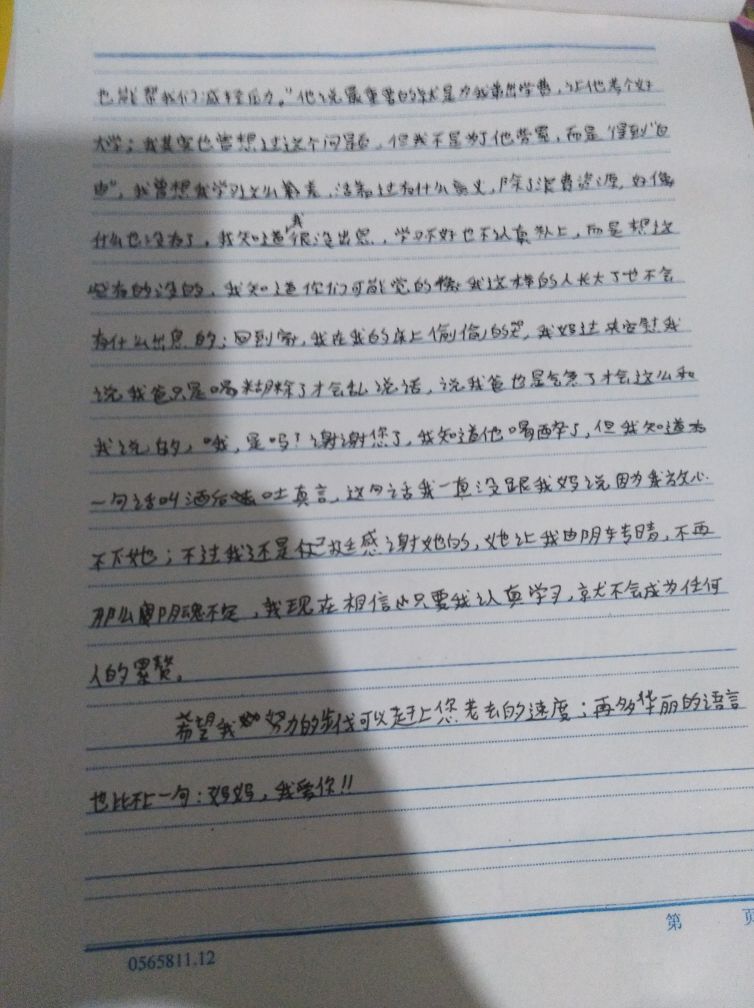 也能帮我们减轻压力。"他说最重要的就是为我弟出学费，让他考个好
大学；我其实也曾想过这个问题，但我不是为了他劳累，而是得到"自
由"，我曾想我学习这么差，活着还有什么意义，除了浪费资源，好像
什么也没有了，我知道我很没出息，学习不好也不认真补上，而是想这
些有的没的，我知道你们可能觉的像我这样的人长大了也不会
有什么出息的；回到家，我在我的床上偷偷的哭，我妈过来安慰我
说我爸只是喝糊涂了才会乱说话，说我爸也是气急了才会这么和
我说的，哦，是吗？谢谢您了，我知道他喝醉了，但我知道有
一句话叫酒后吐真言，这句话我一直没跟我妈说因为我放心
不下她；不过我还是很感谢她的，她让我由阴转晴，不再
那么阴魂不定，我现在相信只要我认真学习，就不会成为任何
人的累赘。
希望我努力的步伐可以赶上您老去的速度；再多华丽的语言
也比不上一句：妈妈，我爱你！！
第 页
0565811.12